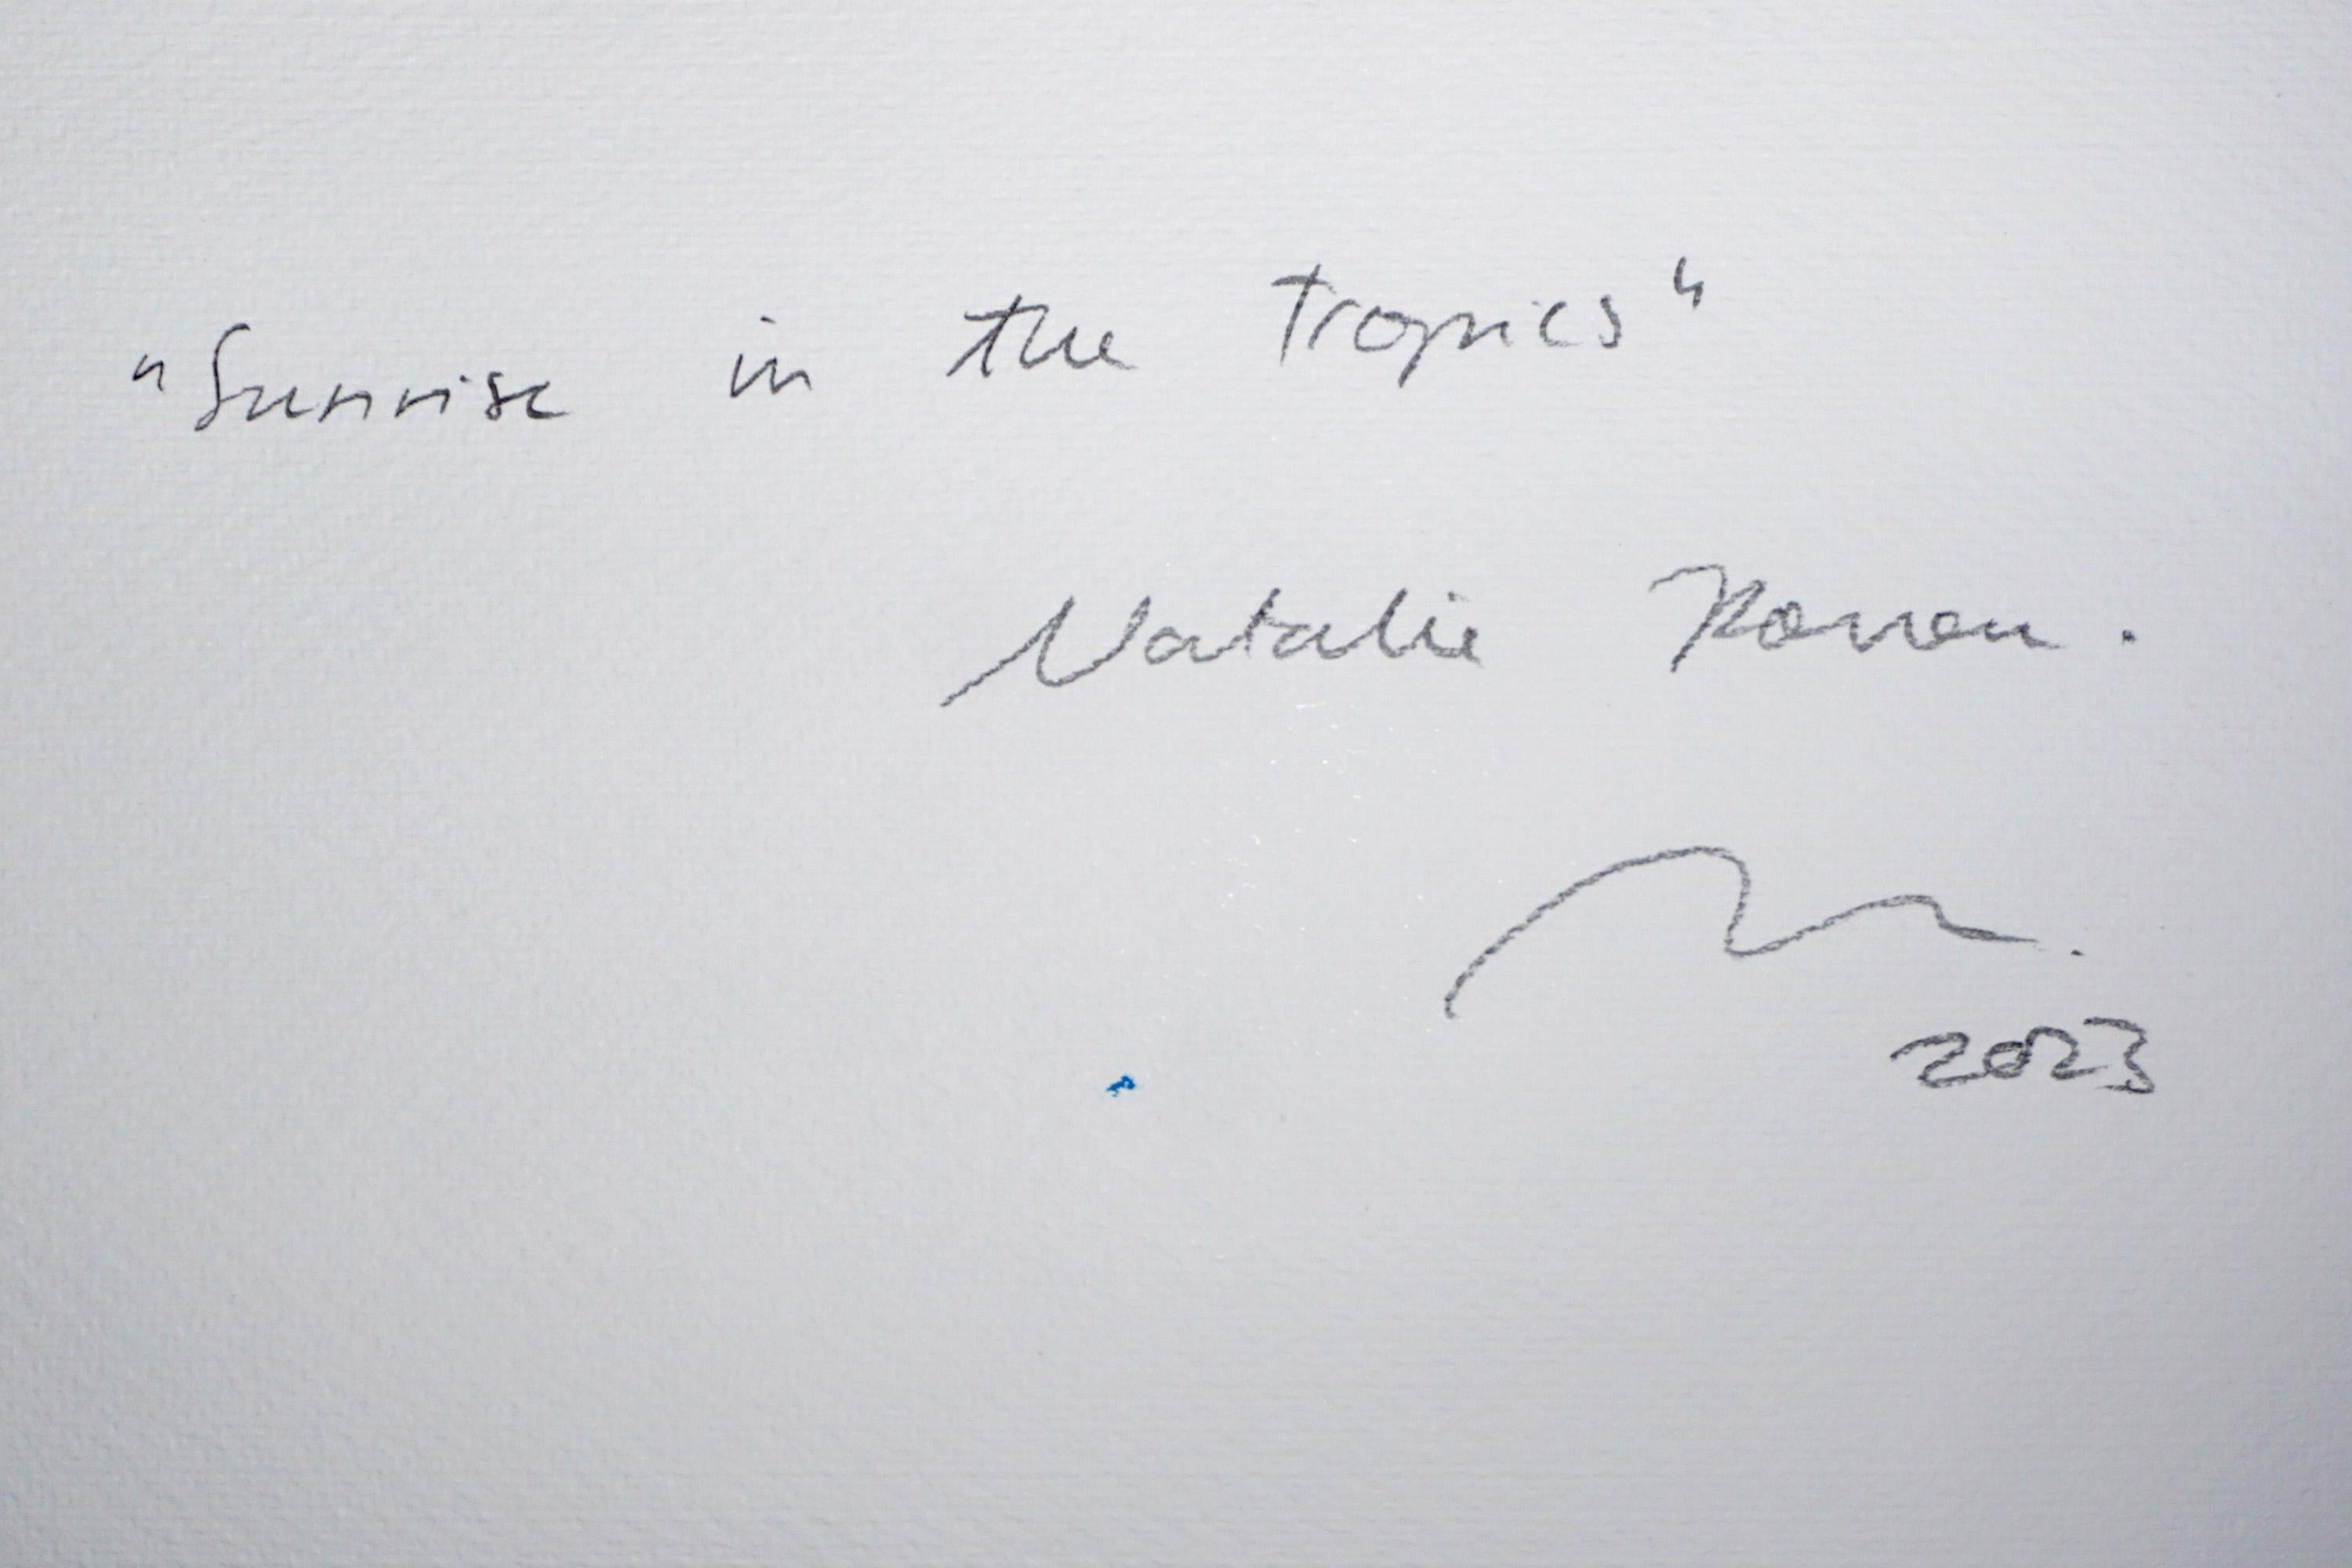 "Sunrise in the tropics"
Natalie
2023